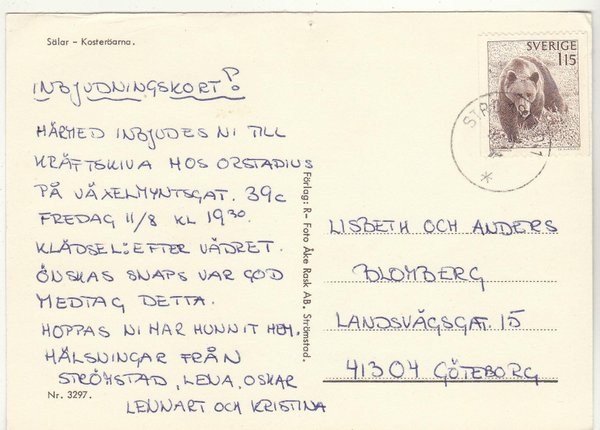 Sälar – Kosteröarna.
SVERIGE
115
INBJUDNINGSKORT?!
HÄRMED INBJUDES NI TILL
KRÄFTSKIVA HOS ORSTADIUS
PÅ VÄXELMYNTSGAT. 39c
FREDAG 11/8 KL 19³⁰.
KLÄDSEL: EFTER VÄDRET.
ÖNSKAS SNAPS VAR GOD
MEDTAG DETTA.
HOPPAS NI HAR HUNNIT HEM.
HÄLSNINGAR FRÅN
STRÖMSTAD, LENA, OSKAR
LENNART OCH KRISTINA
Nr. 3297.
Förlag: R– Foto Åke Rask AB. Strömstad.
LISBETH OCH ANDERS
BLOMBERG
LANDSVÄGSGAT. 15
41304 GÖTEBORG